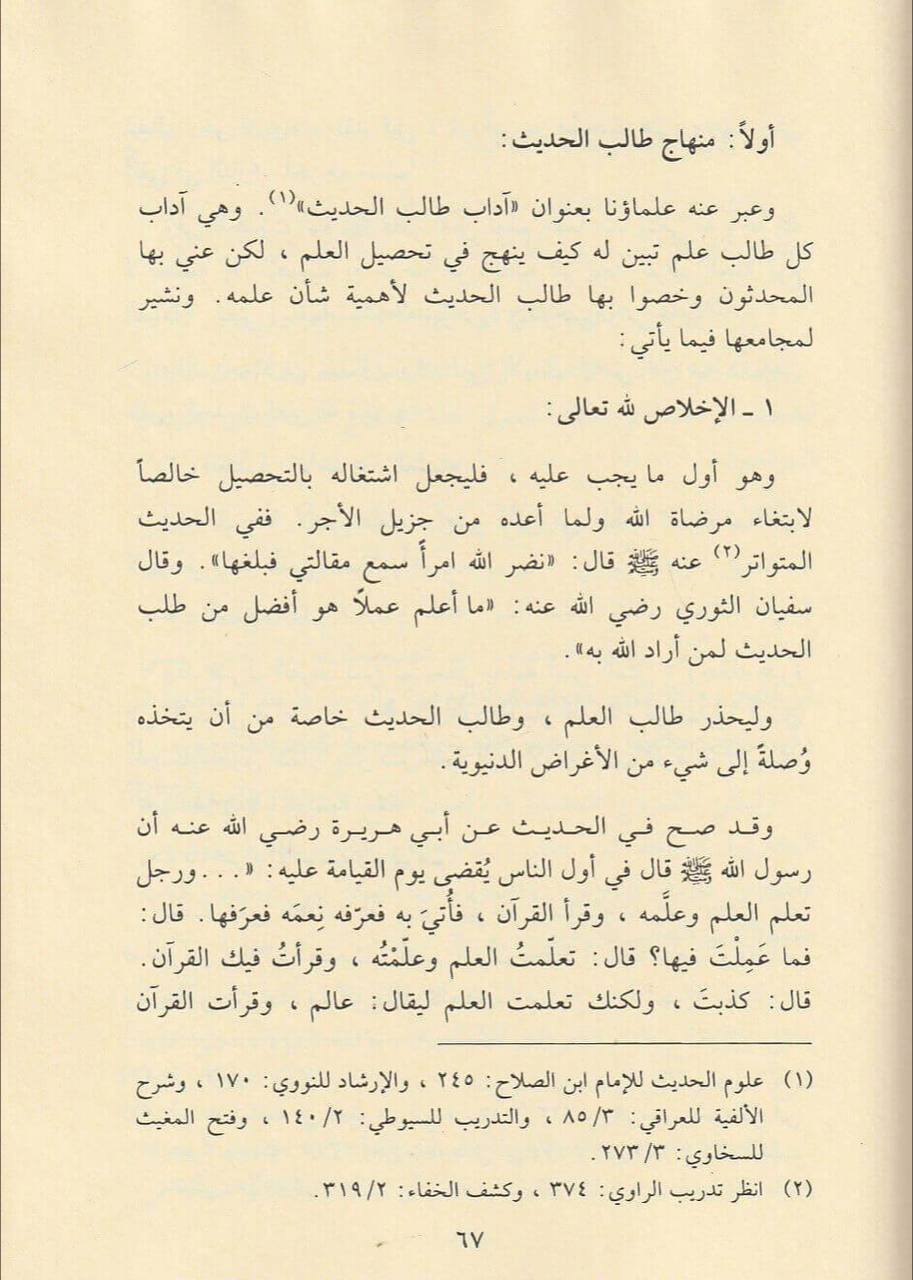 أولاً: منهاج طالب الحديث:
وعبر عنه علماؤنا بعنوان «آداب طالب الحديث»(١). وهي آداب
كل طالب علم تبين له كيف ينهج في تحصيل العلم ، لكن عني بها
المحدثون وخصوا بها طالب الحديث لأهمية شأن علمه. ونشير
لمجامعها فيما يأتي:
١ ـ الإخلاص لله تعالى:
وهو أول ما يجب عليه ، فليجعل اشتغاله بالتحصيل خالصاً
لابتغاء مرضاة الله ولما أعده من جزيل الأجر. ففي الحديث
المتواتر(٢) عنه ﷺ قال: «نضر الله امرأً سمع مقالتي فبلغها». وقال
سفيان الثوري رضي الله عنه: «ما أعلم عملاً هو أفضل من طلب
الحديث لمن أراد الله به».
وليحذر طالب العلم ، وطالب الحديث خاصة من أن يتخذه
وُصلةً إلى شيء من الأغراض الدنيوية.
وقد صح في الحديث عن أبي هريرة رضي الله عنه أن
رسول الله ﷺ قال في أول الناس يُقضى يوم القيامة عليه: «...ورجل
تعلم العلم وعلَّمه ، وقرأ القرآن ، فأُتيَ به فعرّفه نِعمَه فعرَفها. قال:
فما عَمِلْتَ فيها؟ قال: تعلّمتُ العلم وعلّمْتُه ، وقرأتُ فيك القرآن.
قال: كذبتَ ، ولكنك تعلمت العلم ليقال: عالم ، وقرأت القرآن
(١) علوم الحديث للإمام ابن الصلاح: ٢٤٥ ، والإرشاد للنووي: ١٧٠ ، وشرح
الألفية للعراقي: ٣/ ٨٥ ، والتدريب للسيوطي: ٢/ ١٤٠ ، وفتح المغيث
للسخاوي: ٣/ ٢٧٣.
(٢) انظر تدريب الراوي: ٣٧٤ ، وكشف الخفاء: ٢/ ٣١٩.
٦٧